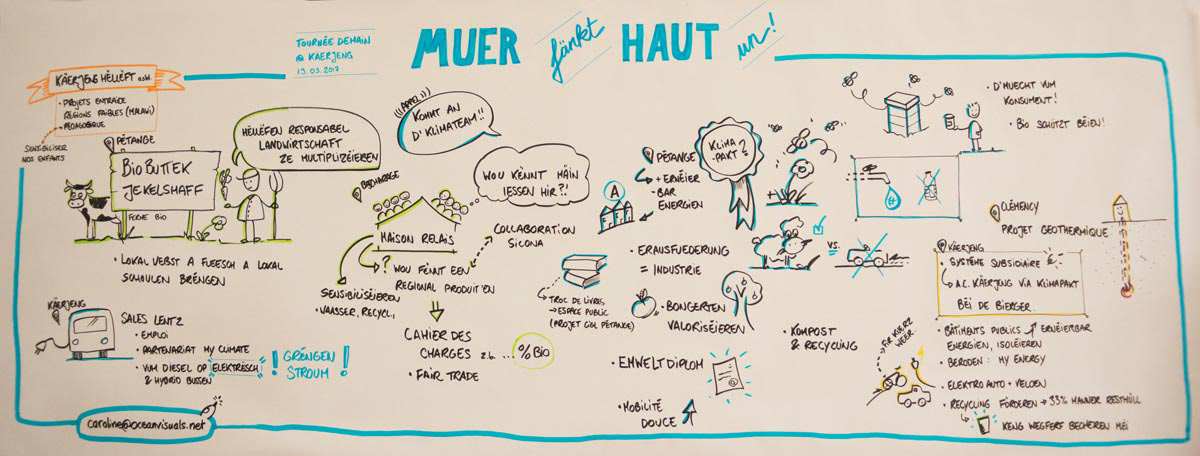 TOURNÉE DEMAIN
@ KÄERJENG
19.05.2017
MUER fänkt HAUT un!
KÄERJENG HËLLËFT asbl.
• PROJETS ENTRAIDE
RÉGIONS FAIBLES (MALAWI)
• PÉDAGOGIQUE
SENSIBILISER
NOS ENFANTS
PÉTANGE
BIO BUTTEK
JEKELSHAFF
FERME BIO
HËLLËFEN RESPONSABEL
LANDWIRTSCHAFT
ZE MULTIPLIZÉIEREN
• LOKAL UEBST A GEMEIS A LOKAL
SCHOULEN BRÉNGEN
KÄERJENG
SALES LENTZ
• EMPLOI
• PARTENARIAT MY CLIMATE
• VUM DIESEL OP ELEKTRËSCH
& HYBRID BUSSEN
! GRÉNGEN
STROUM !
caroline@oceanvisuals.net
((APPEL))
KOMMT AN
D'KLIMATEAM!!
WOU KËNNT MÄIN
IESSEN HIR?!
BASCHARAGE
MAISON RELAIS
COLLABORATION
SICONA
? WOU FËNNT EEN
REGIONAL PRODUIT'EN
SENSIBILISÉIEREN
• WAASSER, RECYCL.
CAHIER DES
CHARGES z.b. ... % BIO
• FAIR TRADE
TROC DE LIVRES
→ ESPACE PUBLIC
(PROJET CIGL PÉTANGE)
PÉTANGE
+ ERNËIER
- BAR
ENERGIEN
A
KLIMA
PAKT?
• ERAUSFUEDERUNG
= INDUSTRIE
• BONGERTEN
VALORISÉIEREN
• EMWELTDIPLOM
• MOBILITÉ
DOUCE
VS.
• KOMPOST
& RECYCLING
• D'MUECHT VUM
KONSUMENT!
• BIO SCHÜTZT BEIEN!
CLÉMENCY
PROJET GEOTHERMIQUE
KÄERJENG
• SYSTÈME SUBSIDIAIRE
A.C. KÄERJENG VIA KLIMAPAKT
BEI DE BIERGER.
• BÂTIMENTS PUBLICS ERNËIERBAR
ENERGIEN, ISOLÉIEREN
• BERODEN: MY ENERGY
FIR KUERZ
WEER
• ELEKTROAUTO + VELOEN
• RECYCLING FÖRDEREN → 33% MANNER RESTMÜLL
KENG WEGFERF BECHEREN MÉI